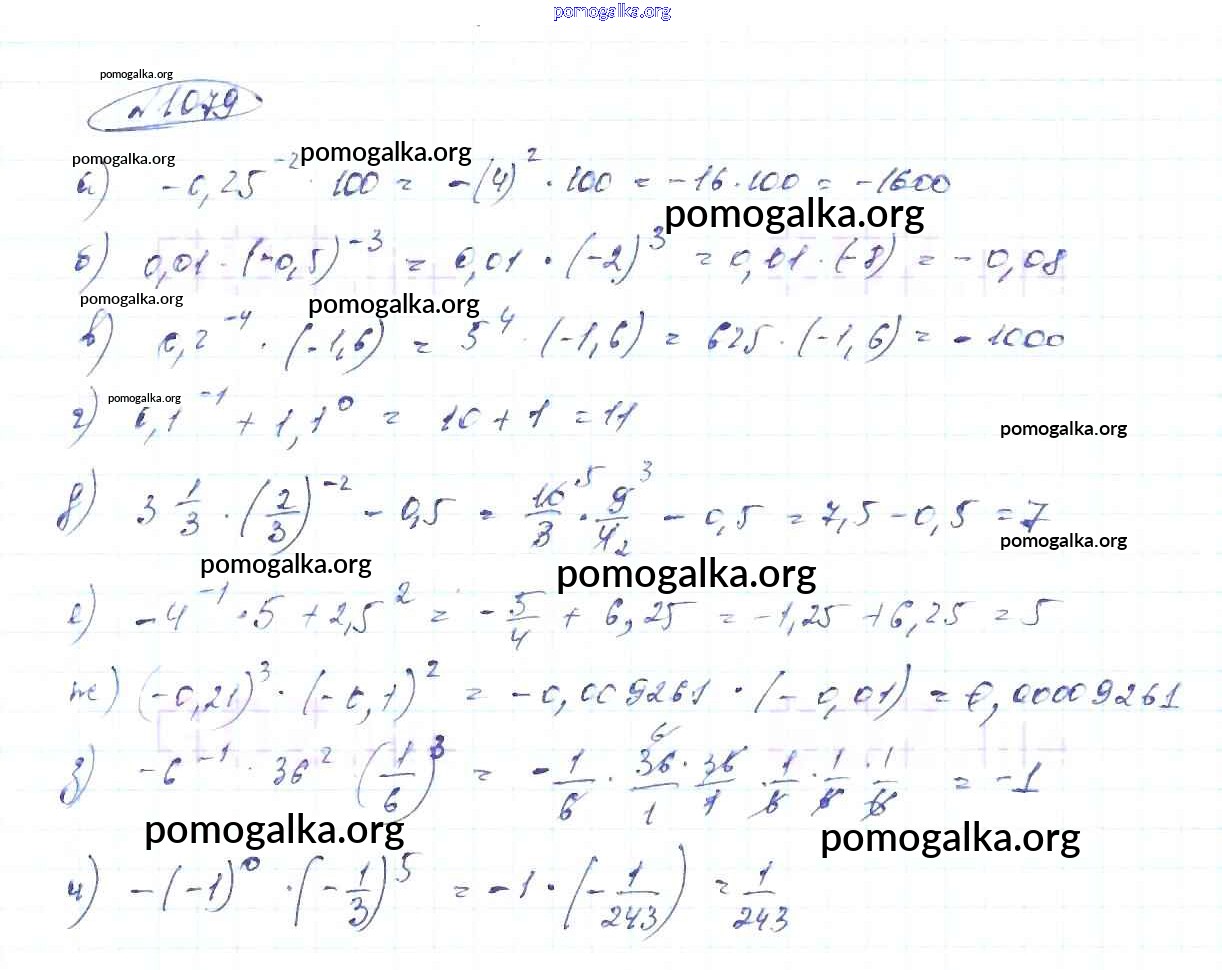 pomogalka.org
pomogalka.org
№1079
pomogalka.org pomogalka.org
а) -0,25^-2 · 100 = -(4)^2 · 100 = -16·100 = -1600
pomogalka.org
б) 0,01 · (-0,5)^-3 = 0,01 · (-2)^3 = 0,01 · (-8) = -0,08
pomogalka.org pomogalka.org
в) 0,2^-4 · (-1,6) = 5^4 · (-1,6) = 625 · (-1,6) = -1000
pomogalka.org
г) 0,1^-1 + 1,1^0 = 10 + 1 = 11
pomogalka.org
д) 3 1/3 · (2/3)^-2 - 0,5 = 10/3 5 · 9/4 3 2 - 0,5 = 7,5 - 0,5 = 7
pomogalka.org
pomogalka.org pomogalka.org
е) -4^-1 · 5 + 2,5^2 = -5/4 + 6,25 = -1,25 + 6,25 = 5
ж) (-0,21)^3 · (-0,1)^2 = -0,009261 · (-0,01) = 0,00009261
з) -6^-1 · 36^2 · (1/6)^3 = -1/6 · 36/1 6 · 36/1 · 1/6 · 1/6 · 1/6 = -1
pomogalka.org pomogalka.org
и) -(-1)^0 · (-1/3)^5 = -1 · (-1/243) = 1/243